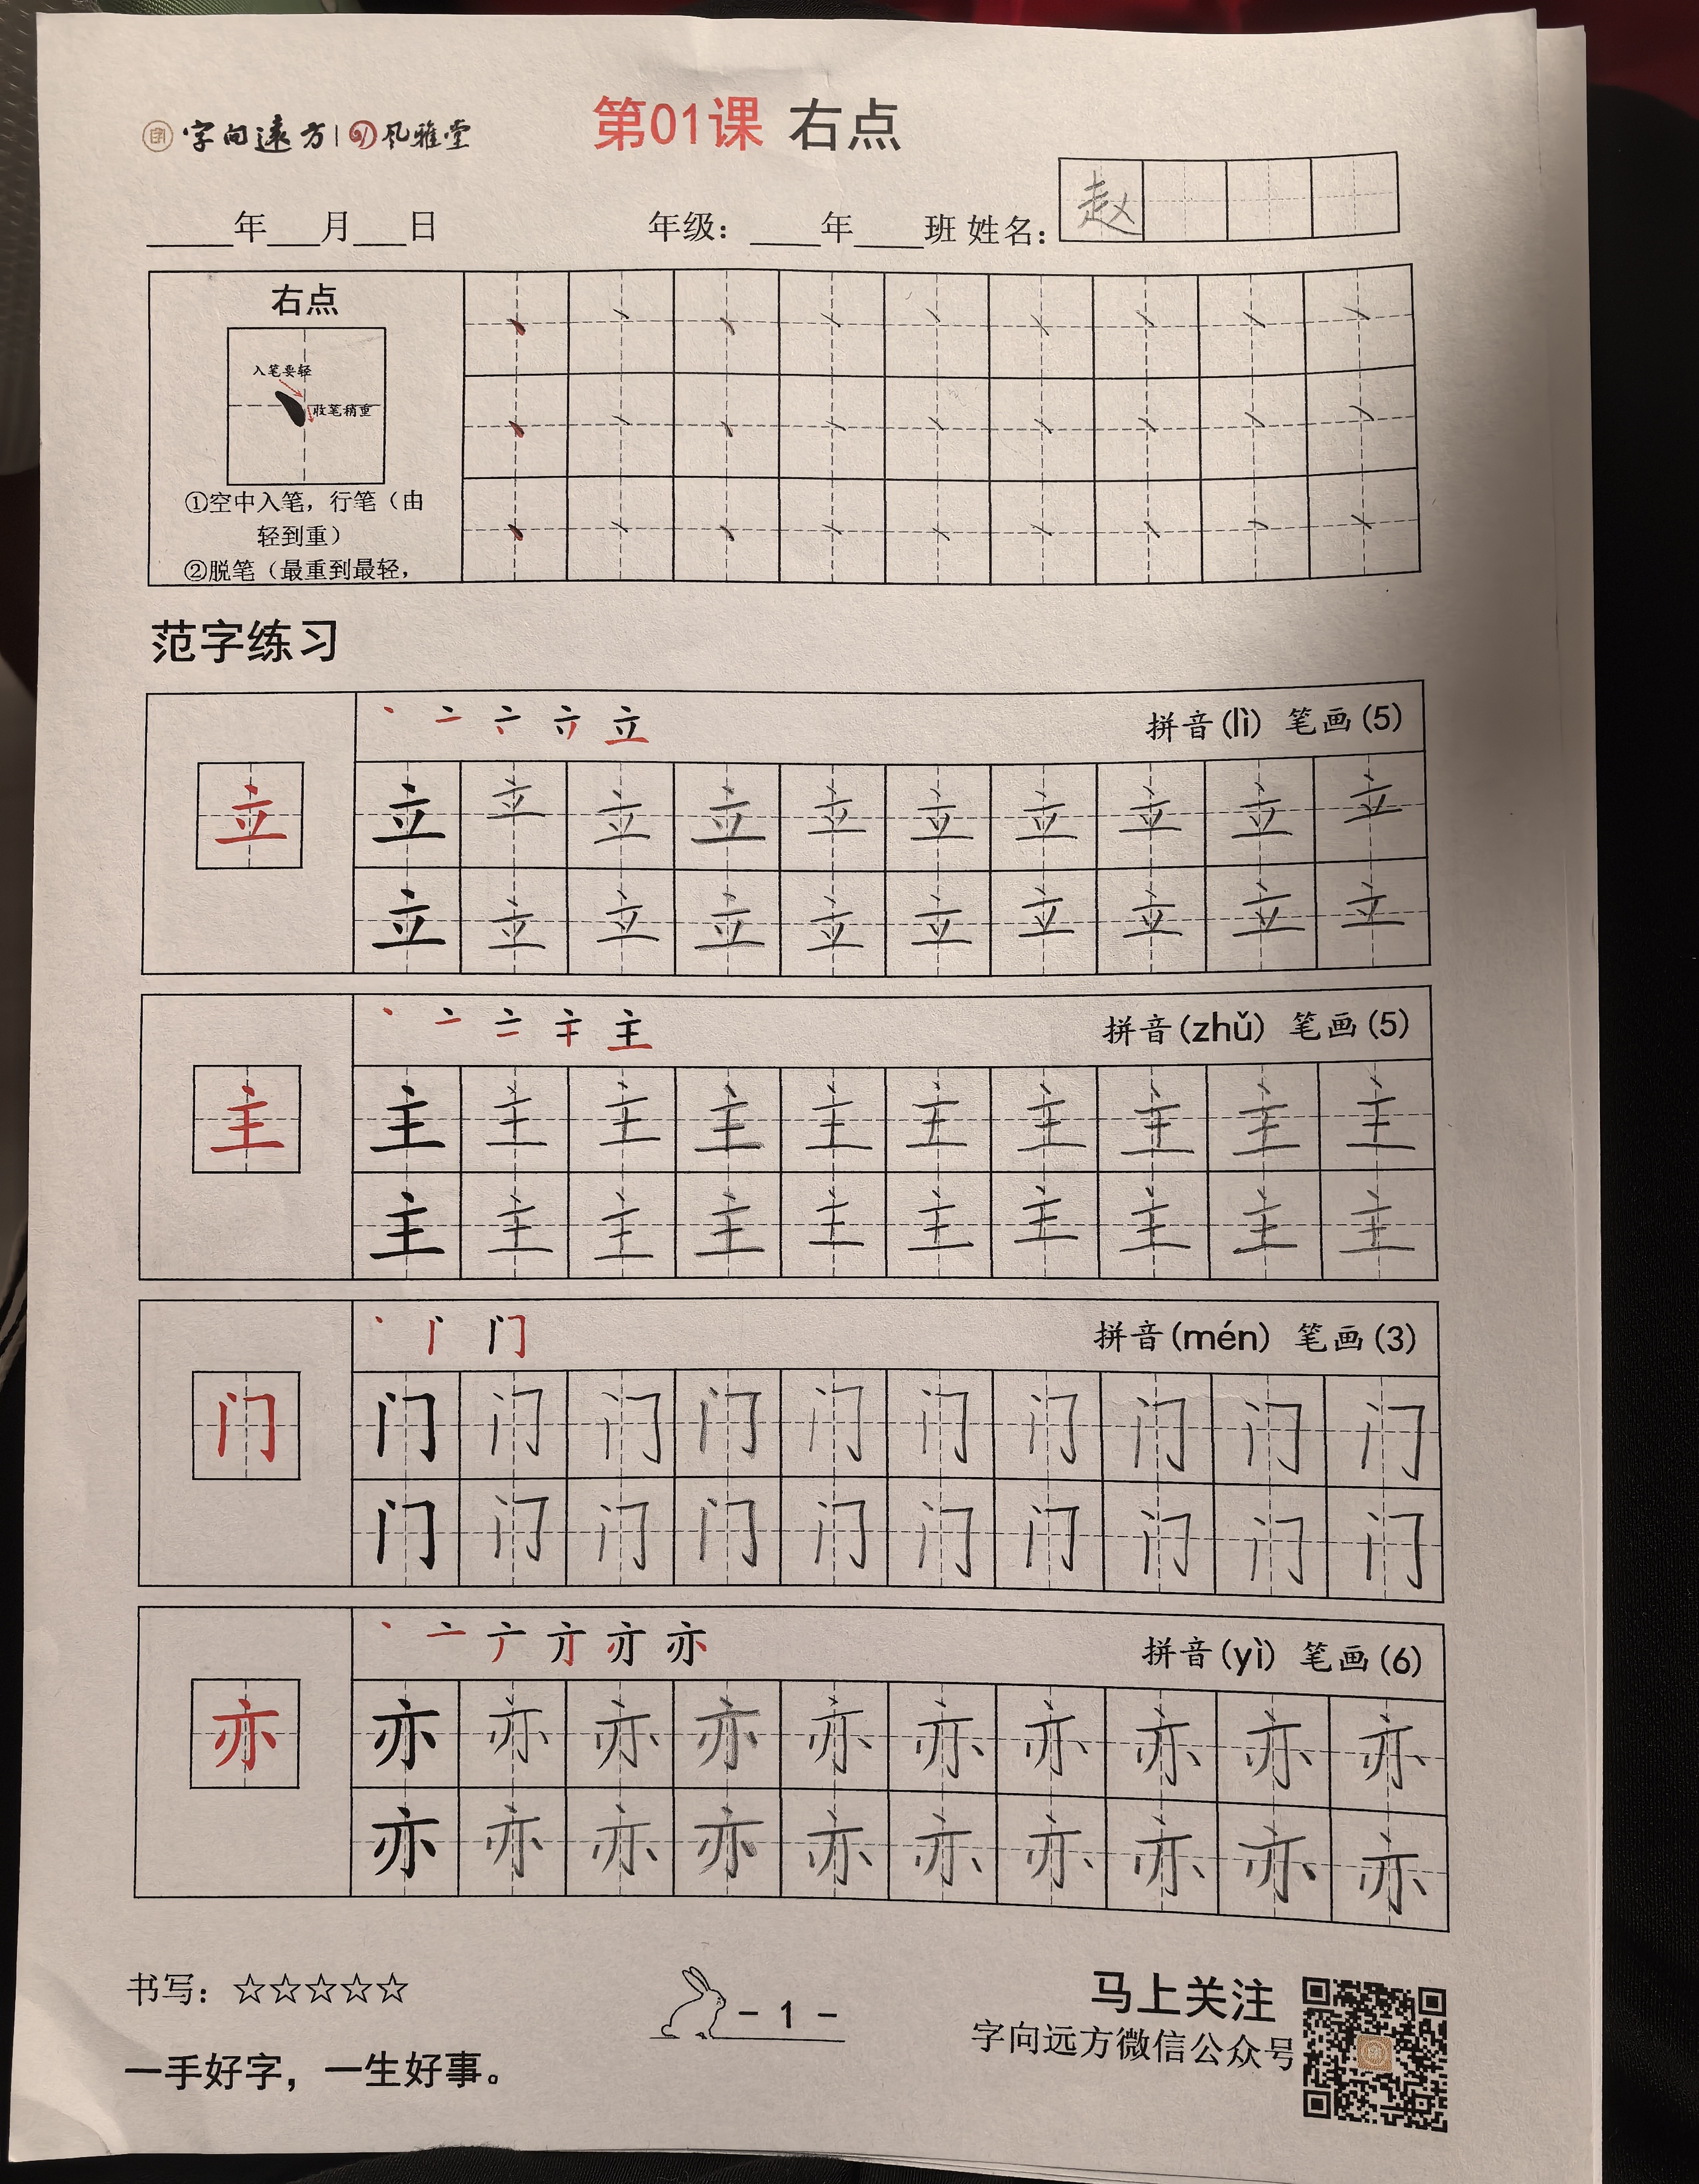 字向遠方 风雅堂
第01课 右点
年 月 日 年级： 年 班 姓名： 赵
右点
入笔要轻
收笔稍重
①空中入笔，行笔（由
轻到重）
②脱笔（最重到最轻，
范字练习
拼音(lì) 笔画(5)
立 立 立 立 立 立 立 立 立 立 立
立 立 立 立 立 立 立 立 立 立
拼音(zhǔ) 笔画(5)
主 主 主 主 主 主 主 主 主 主 主
主 主 主 主 主 主 主 主 主 主
拼音(mén) 笔画(3)
门 门 门 门 门 门 门 门 门 门 门
门 门 门 门 门 门 门 门 门 门
拼音(yì) 笔画(6)
亦 亦 亦 亦 亦 亦 亦 亦 亦 亦 亦
亦 亦 亦 亦 亦 亦 亦 亦 亦 亦
书写：☆☆☆☆☆
- 1 -
马上关注
字向远方微信公众号
一手好字，一生好事。